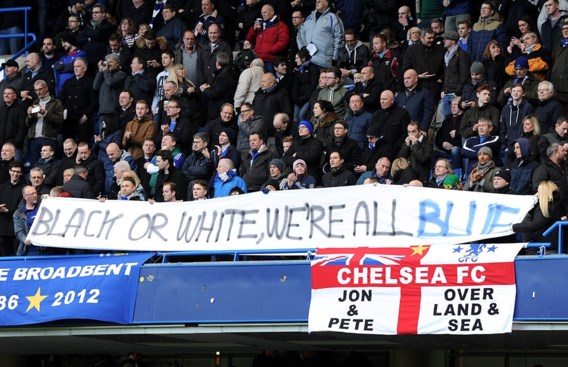 BLACK OR WHITE, WE'RE ALL BLUE
E BROADBENT
86 ★ 2012
CFC
CHELSEA FC
JON OVER
& LAND &
PETE SEA